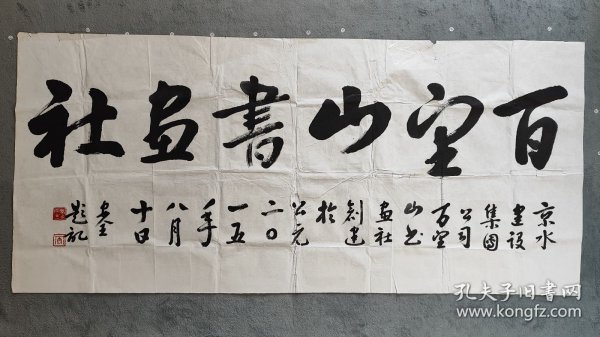 百望山書画社
京水
建设
集团
公司
百望
山书
画社
创建
於
公元
二〇
一五
年
八月
十日
題記
孔夫子旧书网
www.kongfz.com